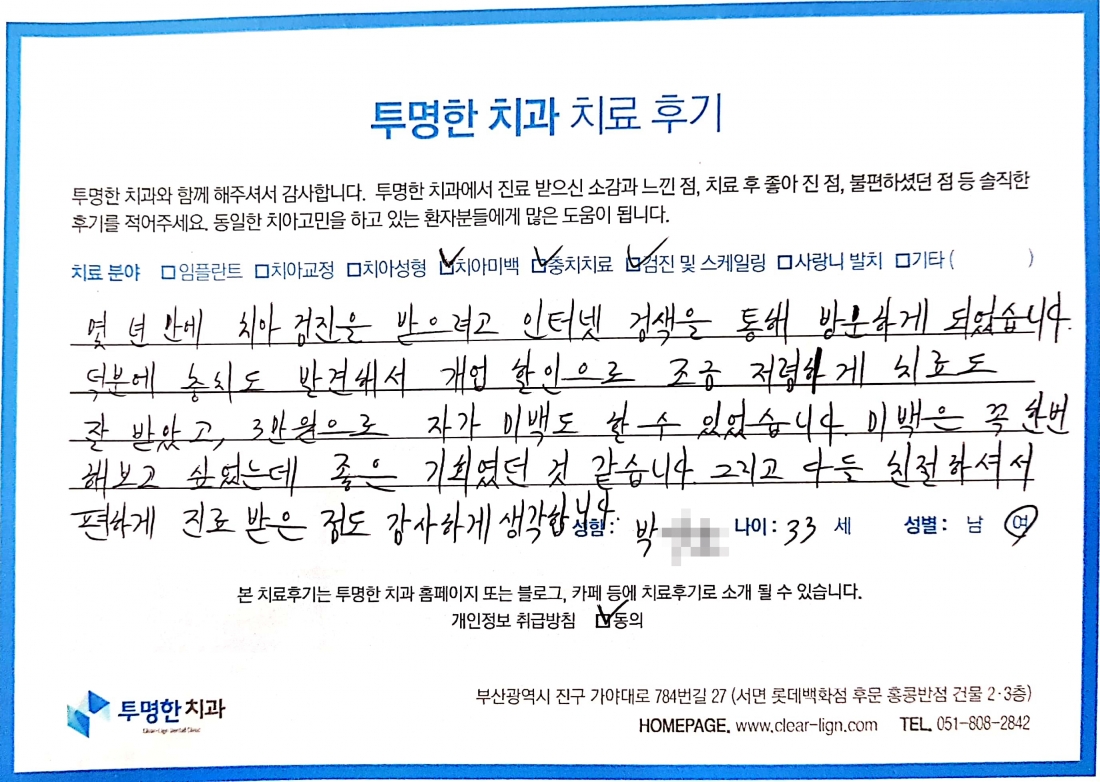 투명한 치과 치료 후기
투명한 치과와 함께 해주셔서 감사합니다. 투명한 치과에서 진료 받으신 소감과 느낀 점, 치료 후 좋아 진 점, 불편하셨던 점 등 솔직한
후기를 적어주세요. 동일한 치아고민을 하고 있는 환자분들에게 많은 도움이 됩니다.
치료 분야 □임플란트 □치아교정 □치아성형 ☑치아미백 ☑충치치료 ☑검진 및 스케일링 □사랑니 발치 □기타 ( )
몇 년 만에 치아 검진을 받으려고 인터넷 검색을 통해 방문하게 되었습니다.
덕분에 충치도 발견해서 개업 할인으로 조금 저렴하게 치료도
잘 받았고, 3만원으로 자가 미백도 할 수 있었습니다. 미백은 꼭 한번
해보고 싶었는데 좋은 기회였던 것 같습니다. 그리고 다들 친절하셔서
편하게 진료 받은 점도 감사하게 생각합니다.
성함 : 박 나이 : 33 세 성별 : 남 여
본 치료후기는 투명한 치과 홈페이지 또는 블로그, 카페 등에 치료후기로 소개 될 수 있습니다.
개인정보 취급방침 ☑동의
투명한 치과
Clear-Lign Dental Clinic
부산광역시 진구 가야대로 784번길 27 (서면 롯데백화점 후문 홍콩반점 건물 2·3층)
HOMEPAGE. www.clear-lign.com TEL. 051-808-2842